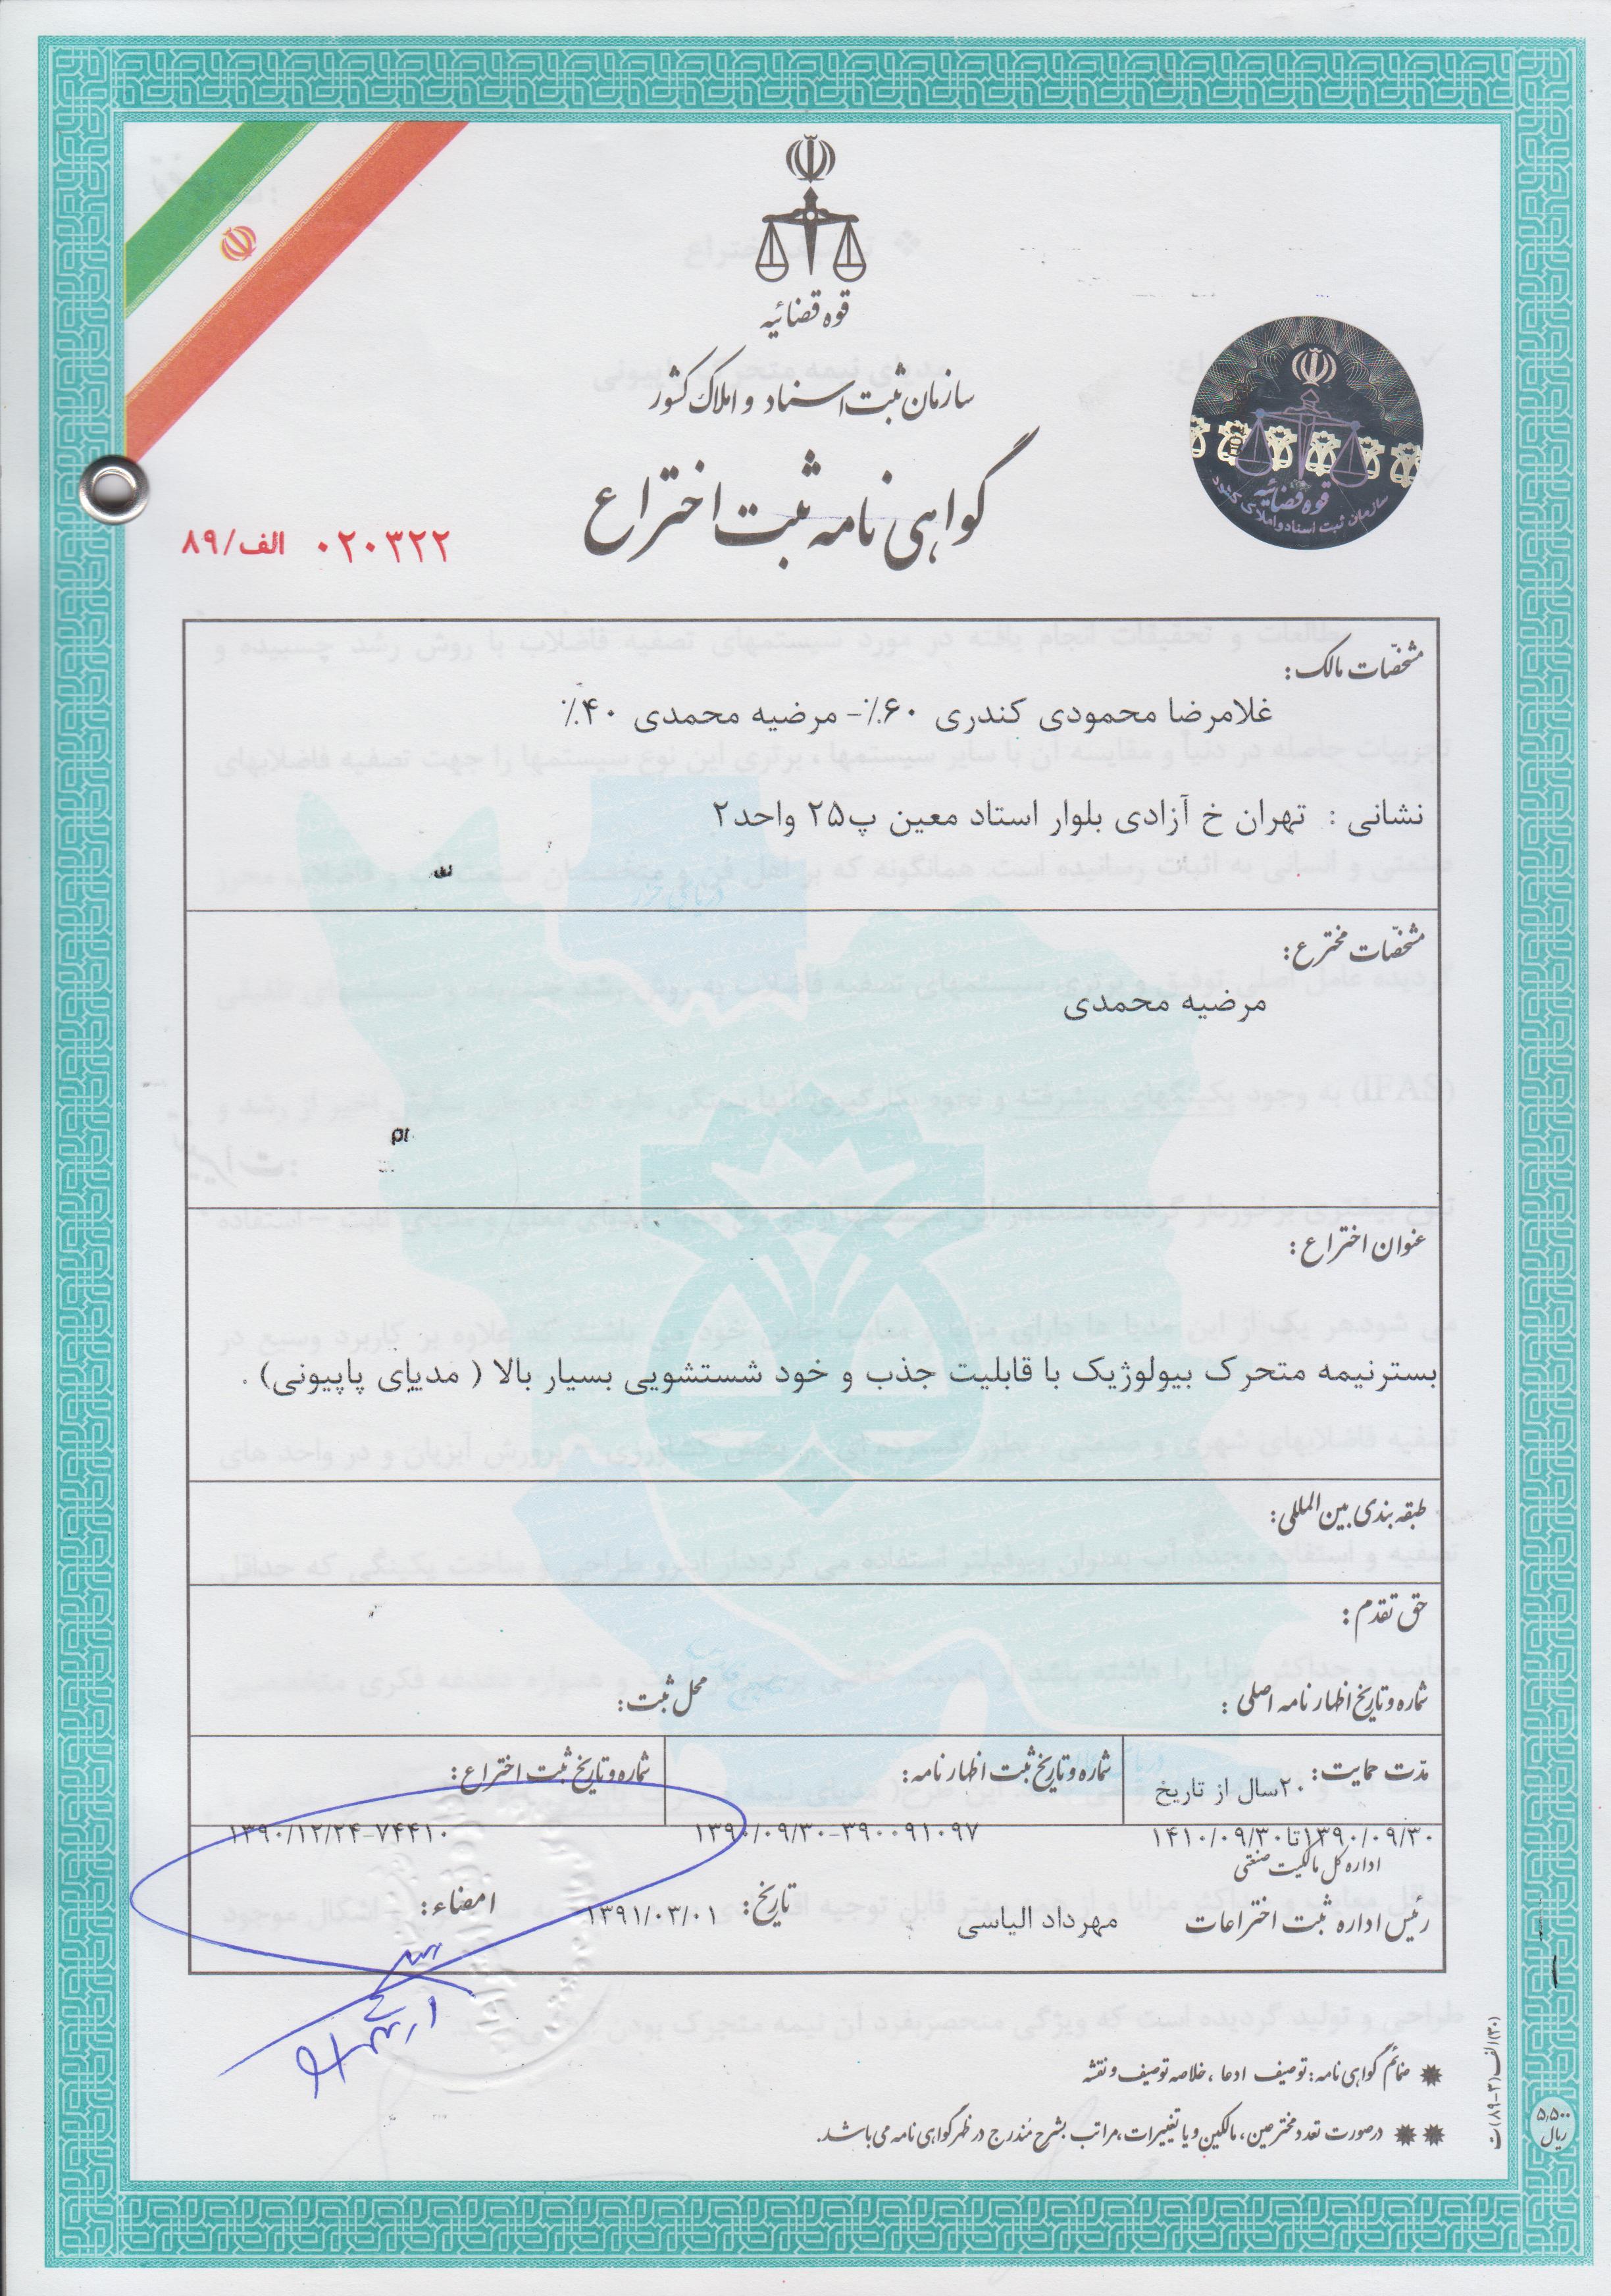 قوه قضائیه
سازمان ثبت اسناد و املاک کشور
گواهی نامه ثبت اختراع
۰۲۰۳۲۲ الف/۸۹
قوه قضائیه
سازمان ثبت اسناد و املاک کشور
مشخّصات مالک:
غلامرضا محمودی کندری ۶۰٪- مرضیه محمدی ۴۰٪
نشانی : تهران خ آزادی بلوار استاد معین پ۲۵ واحد۲
مشخّصات مخترع:
مرضیه محمدی
عنوان اختراع:
بسترنیمه متحرک بیولوژیک با قابلیت جذب و خود شستشویی بسیار بالا ( مدیای پاپیونی) .
طبقه بندی بین المللی:
حق تقدم:
شماره و تاریخ اظهارنامه اصلی: محل ثبت:
مدّت حمایت: ۲۰سال از تاریخ
۱۳۹۰/۰۹/۳۰تا۱۴۱۰/۰۹/۳۰
شماره و تاریخ ثبت اظهارنامه:
۱۳۹۰/۰۹/۳۰-۳۹۰۰۹۱۰۹۷
شماره و تاریخ ثبت اختراع:
۱۳۹۰/۱۲/۲۴-۷۴۴۱۰
اداره کل مالکیت صنعتی
رئیس اداره ثبت اختراعات مهرداد الیاسی تاریخ: ۱۳۹۱/۰۳/۰۱ امضاء:
ضمائم گواهی نامه: توصیف ادعا، خلاصه توصیف و نقشه
درصورت تعدد مخترعین، مالکین و یا تغییرات، مراتب بشرح مُندرج در ظهر گواهی نامه می باشد.
۵,۵۰۰
ریال